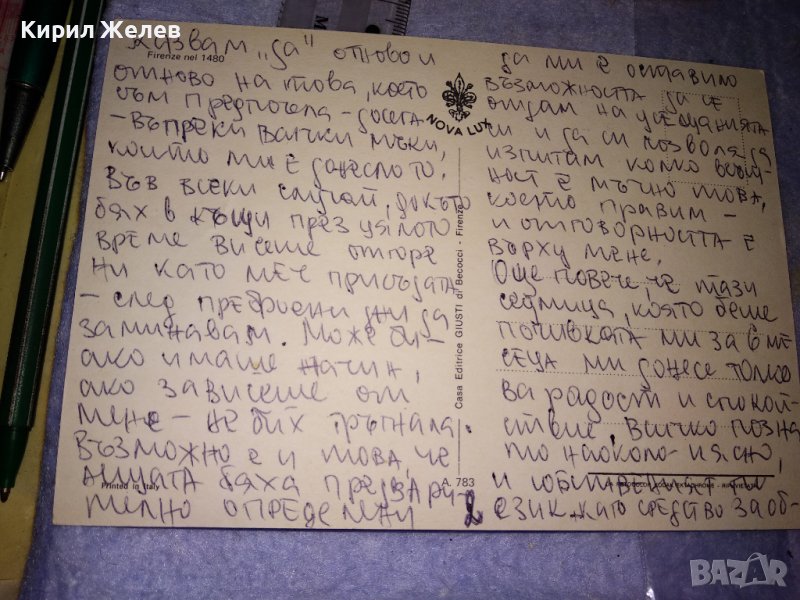 Кирил Желев
Казвам „да" отново и
Firenze nel 1480
отново на това, което
съм предпочела - досега
- въпреки всички мъки,
които ми е донесло то.
Във всеки случай, докато
бях в къщи през цялото
време висеше отгоре
ни като меч присъдата
- след преброени дни да
заминавам. Може би -
ако имаше начин,
ако зависеше от
мене - не бих тръгнала.
Възможно е и това, че
дните бяха предвари-
Printed in Italy
телно определени
NOVA LUX
Casa Editrice GIUSTI di Becocci - Firenze
A. 783
2
да ми е оставило
възможността да се
отдам на усещанията
си и да си позволя да
изпитам колко всъщ-
ност е мъчно това,
което правим -
и отговорността е
върху мене.
Още повече, че тази
седмица, която беше
почивката ми за 6 ме-
сеца ми донесе толко-
ва радост и спокой-
ствие, всичко позна-
то наоколо и ясно,
и собствения ти
език като средство за об-
BAZAR